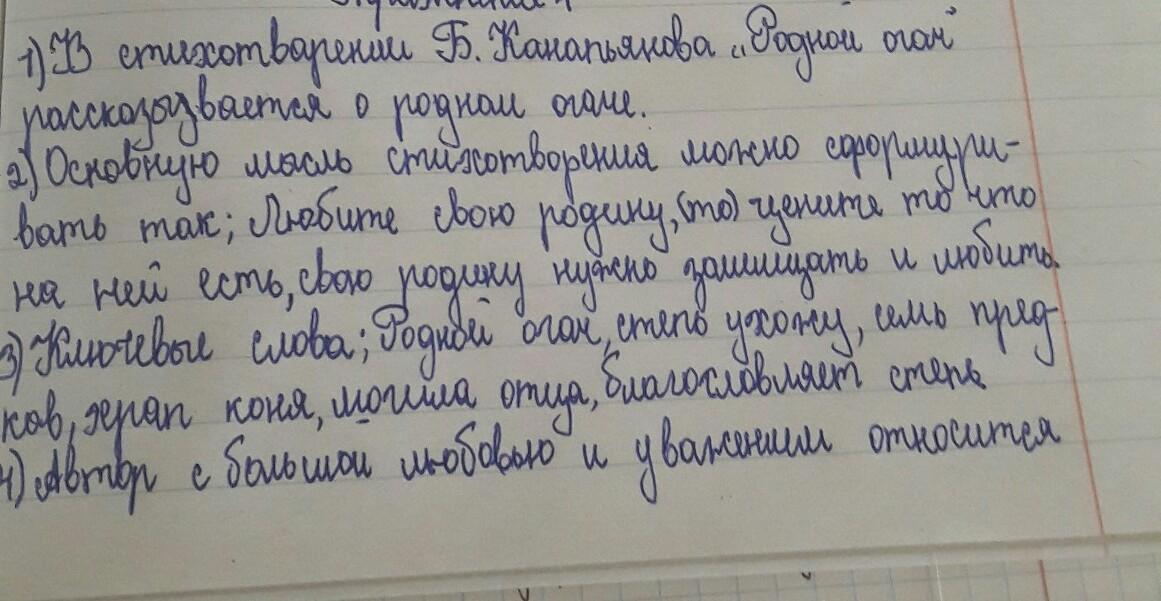 1) В стихотварении Б. Канапьянова „Родной очаг"
рассказывается о родном очаге.
2) Основную мысль стихотворения можно сформури-
вать так; Любите свою родину, (то) цените то что
на ней есть, свою родину нужно защищать и любить.
3) Ключевые слова; Родной очаг, степь ухожу, семь пред-
ков, храп коня, могила отца, благословляет степь
4) Автор с большой любовью и уважением относится